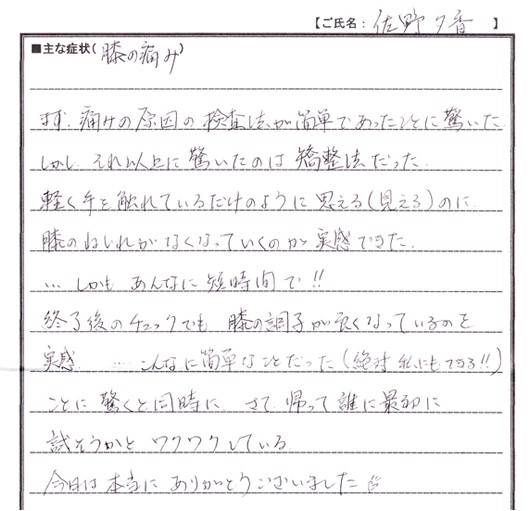 【ご氏名：佐野夕香 】
■主な症状(膝の痛み)
まず、痛みの原因の検査法が簡単であったことに驚いた
しかし、それ以上に驚いたのは矯整法だった.
軽く手を触れているだけのように思える(見える)のに
膝のねじれがなくなっていくのが実感できた.
… しかも あんなに短時間で!!
終了後のチェックでも 膝の調子が良くなっているのを
実感. …… こんなに簡単なことだった(絶対私にもできる!!)
ことに驚くと同時に さて、帰って誰に最初に
試そうかと ワクワクしている
今日は本当に ありがとうございました